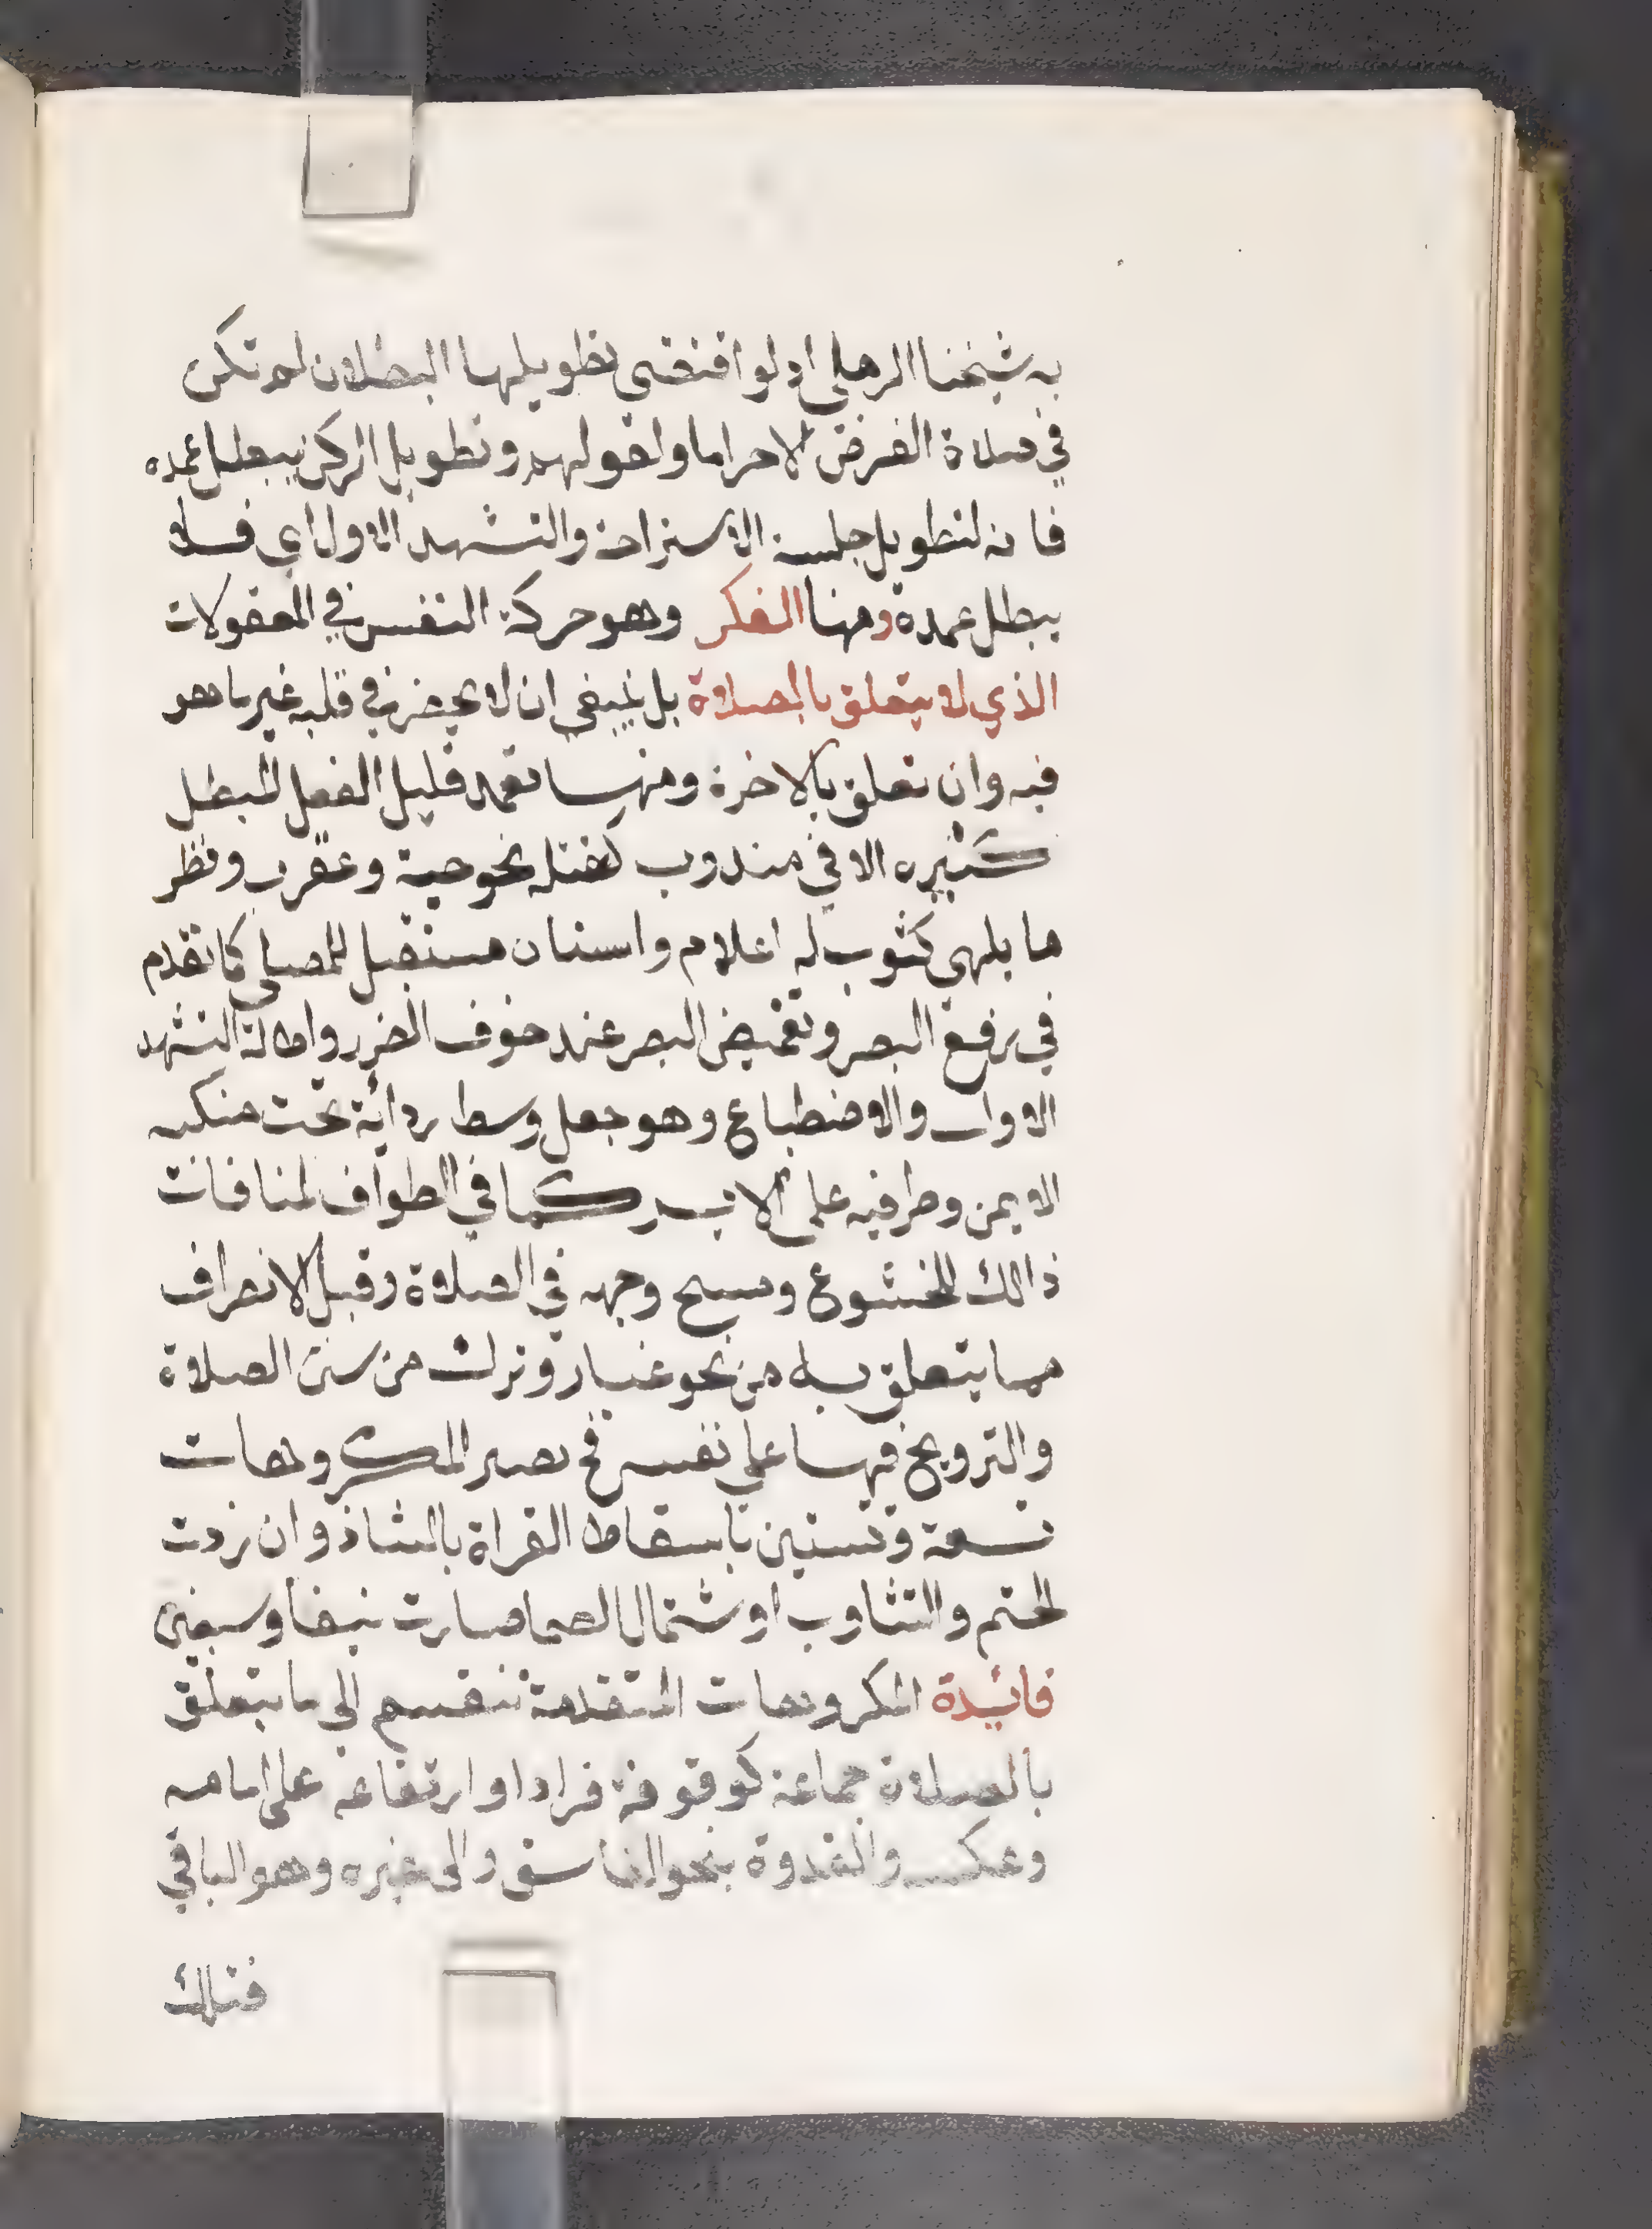 به شيخنا الرملي اذ لو اقتضى تطويلها البطلان لم تكن
في صلاة الفرض الاحراما ولقولهم وتطويل الركن يبطل عمده
فانه لتطويل جلسة الاستراحة والتشهد الاول اي فلا
يبطل عمدة ومنها الفكر وهو حركة النفس في المعقولات
الذي لا يتعلق بالصلاة بل ينبغي ان لا يحضر في قلبه غير ما هو
فيه وان تعلق بالاخرة ومنها تعمد قليل الفعل المبطل
كثيره الا في مندوب كقتله نحو حية وعقرب ونظر
ما يلهي كثوب له اعلام وانسان مستقبل للمصلي كما تقدم
في رفع البصر وتغميض البصر عند خوف الضرر واطالة التشهد
الاول والاضطباع وهو جعل وسط ردائة تحت منكبه
الايمن وطرفيه على الايسر كما في الطواف لمنافات
ذالك للخشوع ومسح وجهه في الصلاة وقبل الانصراف
مما يتعلق به من نحو غبار وترك من سنن الصلاة
والترويح فيها على نفسه فح تصير المكروهات
تسعة وتستين باسقاط القراة بالشاذ وان زدت
الختم والتثاوب اوشتمال الصما صارت نيفا وسبعين
فائيدة المكروهات المتقدمة تنقسم الى ما يتعلق
بالصلاة جماعة كوقوفه فرادا وارتفاعه على امامه
وعكسه والقدوة بنحو الفاسق والى غيره وهو الباقي
فتلك